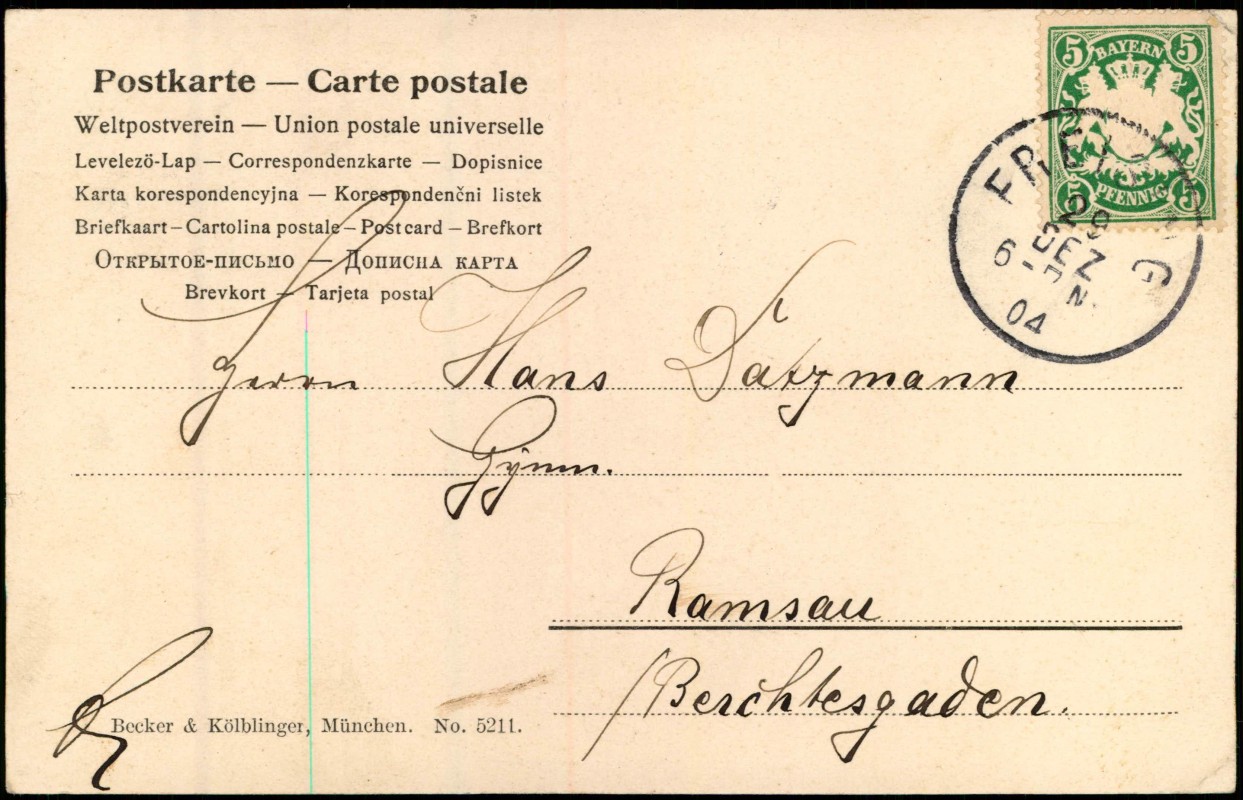 Postkarte — Carte postale
Weltpostverein — Union postale universelle
Levelezö-Lap — Correspondenzkarte — Dopisnice
Karta korespondencyjna — Korespondenčni listek
Briefkaart – Cartolina postale – Postcard – Brefkort
Открытое-письмо — Дописна карта
Brevkort — Tarjeta postal
5 BAYERN 5
5 PFENNIG 5
29
DEZ
6
04
Herrn Hans Datzmann
Gymn.
Ramsau
/Berchtesgaden.
Becker & Kölblinger, München. No. 5211.